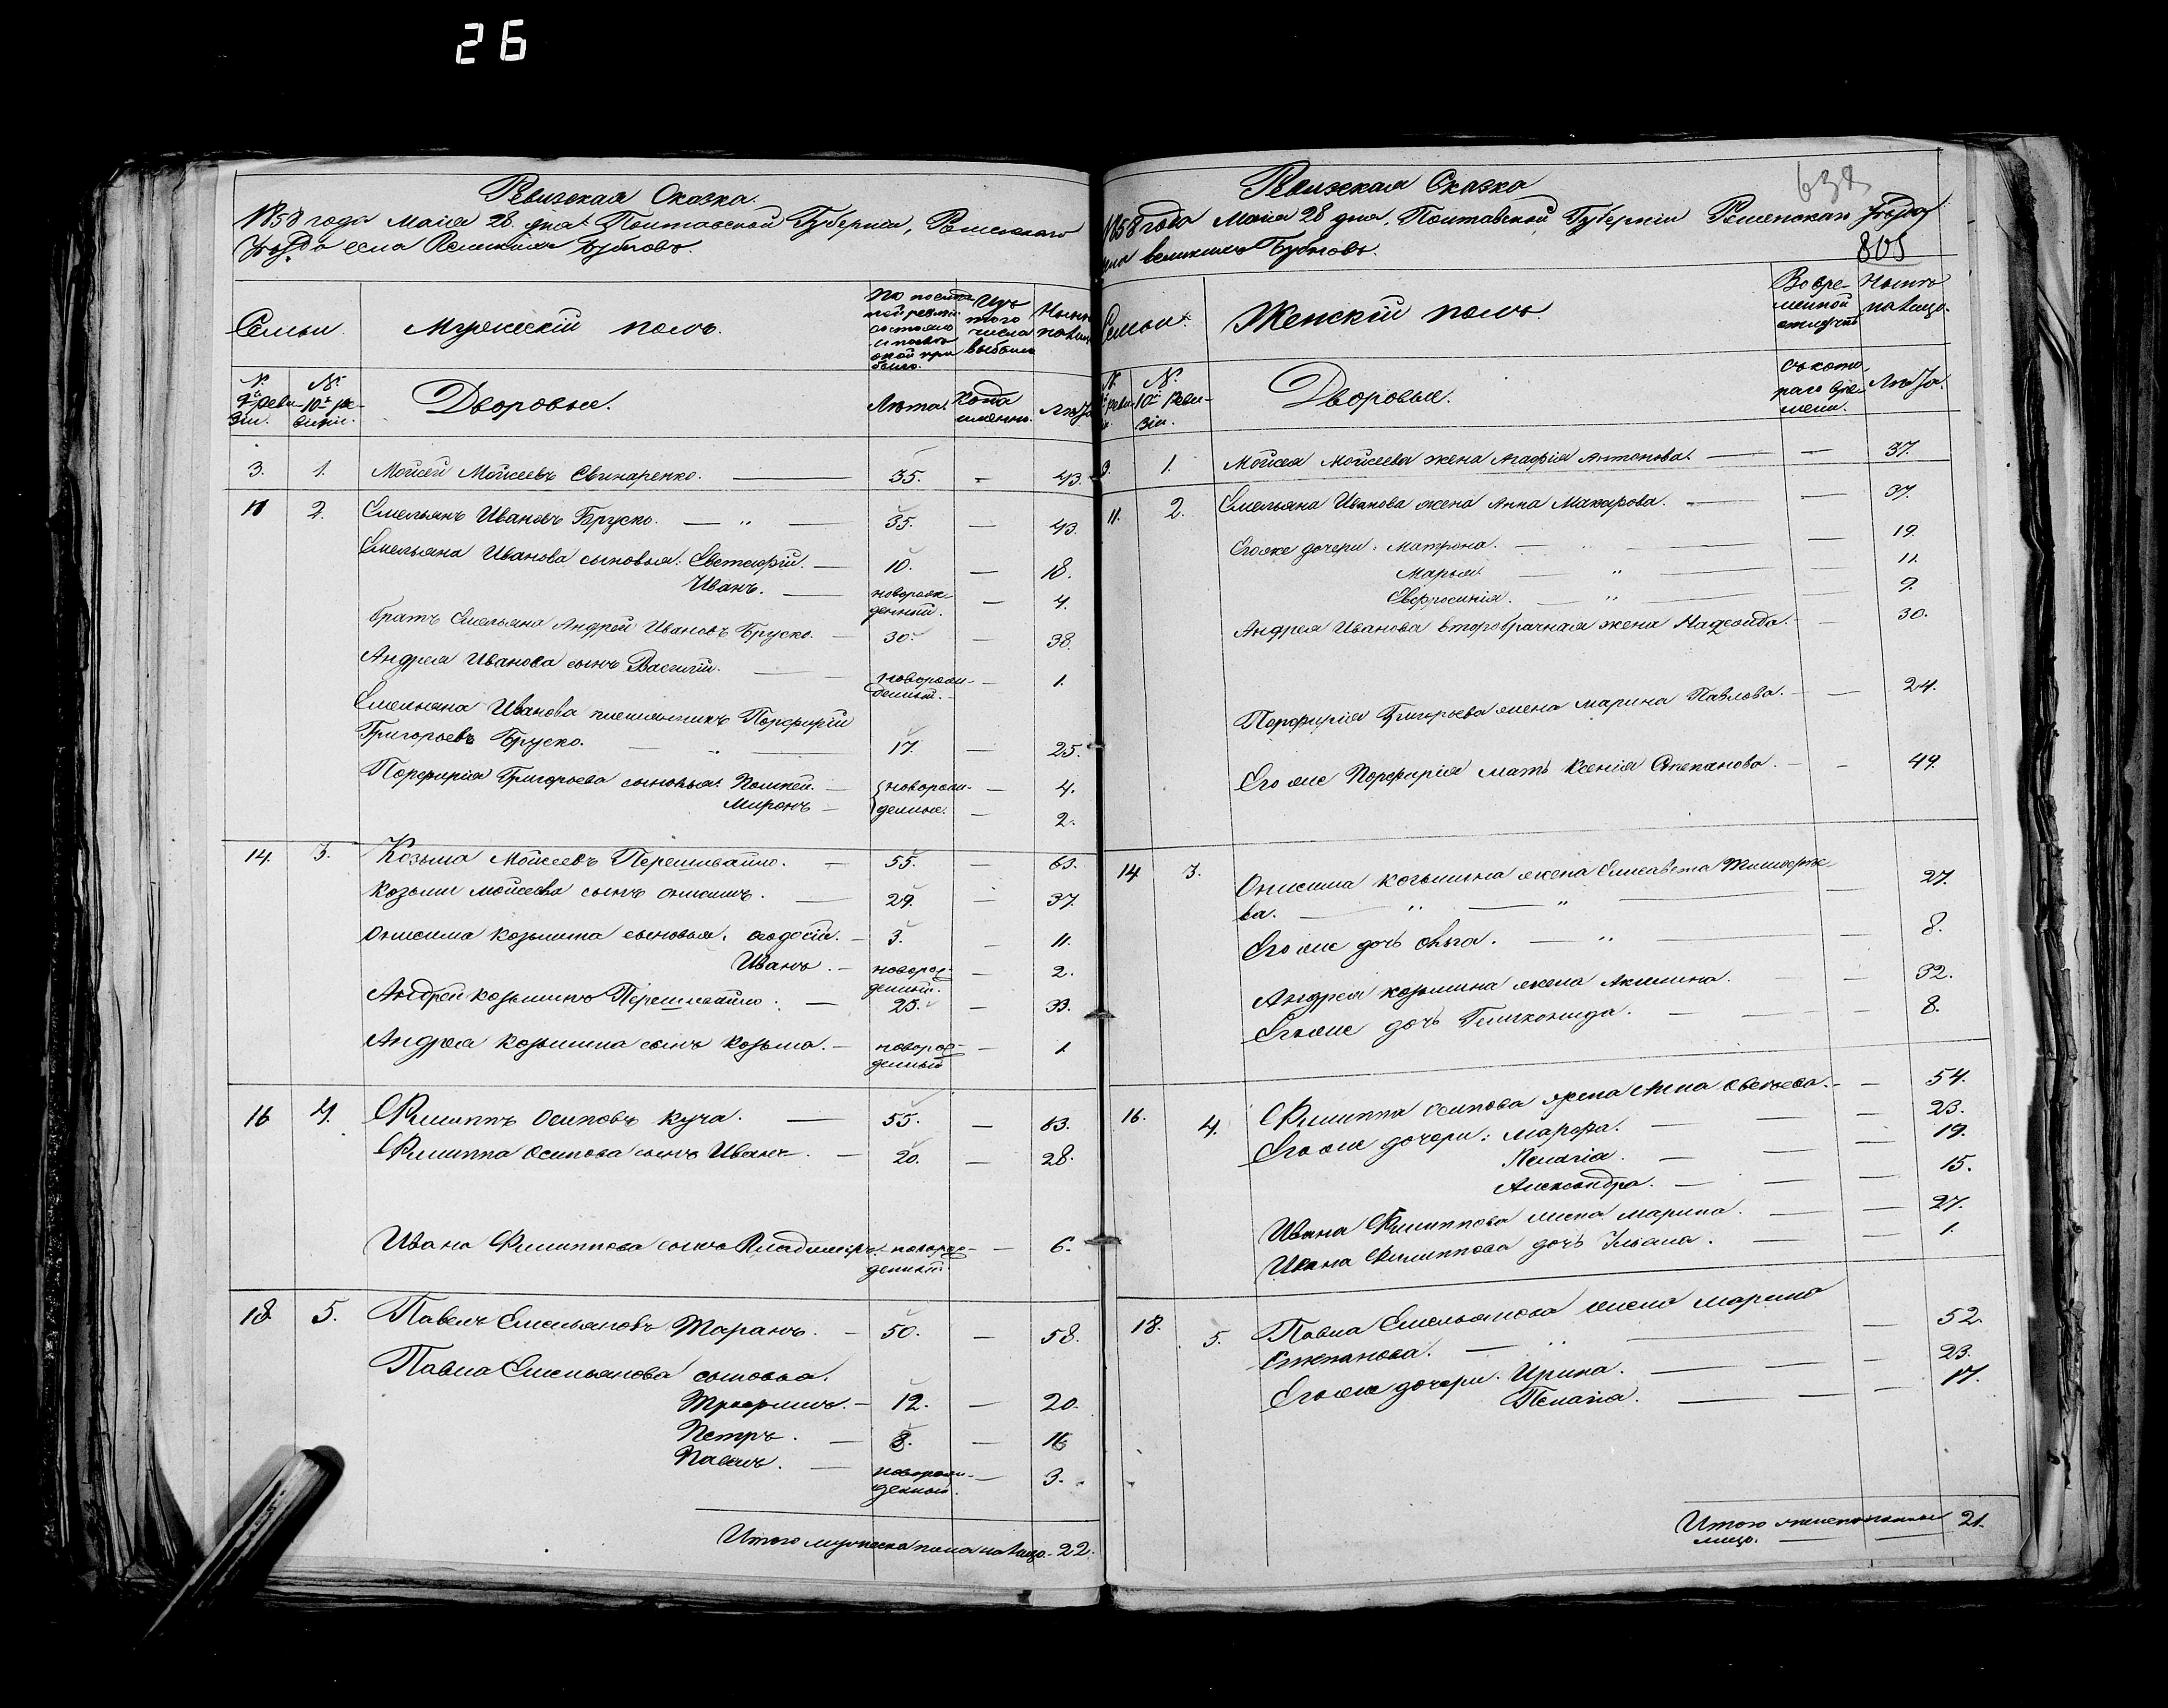 26
Ревизская Сказка.
1858 года Маия 28. дня. Полтавской Губернии, Роменского
Уѣзда села Великихъ Бубновъ.
Семьи.
Мужескій полъ.
Изъ того числа выбыло
Ныне на лицо
№ 9й ревизіи.
№ 10й ревизіи.
Дворовыя.
Лѣта.
Когда именно.
Лѣта
3. 1. Мойсей Мойсеевъ Свинаренко. — 35. - 43.
11 2. Емельянъ Ивановъ Бруско. — " — 35. — 43.
Емельяна Иванова сыновья: Евстафій. — 10. — 18.
Иванъ. — новорожденный. — 4.
Братъ Емельяна Андрей Ивановъ Бруско. — 30. — 38.
Андрея Иванова сынъ Василій. — новорожденный. — 1.
Емельяна Иванова племянникъ Порфирій
Григорьевъ Бруско. — " — 17. — 25.
Порфирія Григорьева сыновья: — новорожденные. — 4.
Миронъ — 2.
14. 3. Козьма Мойсеевъ — 55. — 63.
Козьми Мойсеева сынъ Онисимъ. — 29. — 37.
Онисима Козьмина сыновья: Феодосій. — 3. — 11.
Иванъ. — новорожденный. — 2.
Андрей Козьминъ — 25. — 33.
Андрея Козьмина сынъ Козьма. — новорожденный — 1
16 4. Филиппъ Осиповъ Куча. — 55. — 63.
Филиппа Осипова сынъ Иванъ — 20. — 28.
Ивана Филиппова сынъ Владимиръ. — новорожденный. — 6.
18. 5. Павелъ Емельяновъ Таранъ. — 50. — 58.
Павла Емельянова сыновья.
Трофимъ. — 12. — 20.
Петръ. — 8. — 16
Павелъ. — новорожденный. — 3.
Итого мужеска пола на лицо. 22.
638
Ревизская Сказка
1858 года Маия 28 дня, Полтавской Губерніи Роменскаго Уѣзда
села Великихъ Бубновъ.
805
Семьи.
Женскій полъ.
Во временной отлучкѣ
Ныне на лицо.
№ 10й Ревизіи.
Дворовыя.
Съ котораго времени.
Лѣта.
3. 1. Мойсея Мойсеева жена Агафія Антонова. — — 37.
11. 2. Емельяна Иванова жена Анна Макарова. — — 37.
Его же дочери: Матрона. — — 19.
Марья. — " — — 11.
Евфросинія. — " — — 9.
Андрея Иванова второбрачная жена Надежда. — 30.
Порфирія Григорьева жена Марина Павлова. — — 24.
Его же Порфирія мать Ксенія Степанова. — - 49.
14 3. Онисима Козьмина жена Елисавета Тимофее-
ва. — " — " — — 27.
Его же дочь Ольга. — " — — 8.
Андрея Козьмина жена Акилина. — 32.
Его же дочь Гликонида. — — — 8.
16. 4. Филиппа Осипова жена Анна — — 54.
Его же дочери: Марфа. — — — 23.
Пелагія. — — — 19.
Александра. — — — 15.
Ивана Филиппова жена Марина. — — 27.
Ивана Филиппова дочь Ульяна. — — 1.
18. 5. Павла Емельянова жена Марина
Степанова. — " — — 52.
Его же дочери. Ирина. — — — 23.
Пелагія. — — — 17.
Итого женска пола на
лицо. — — 21.